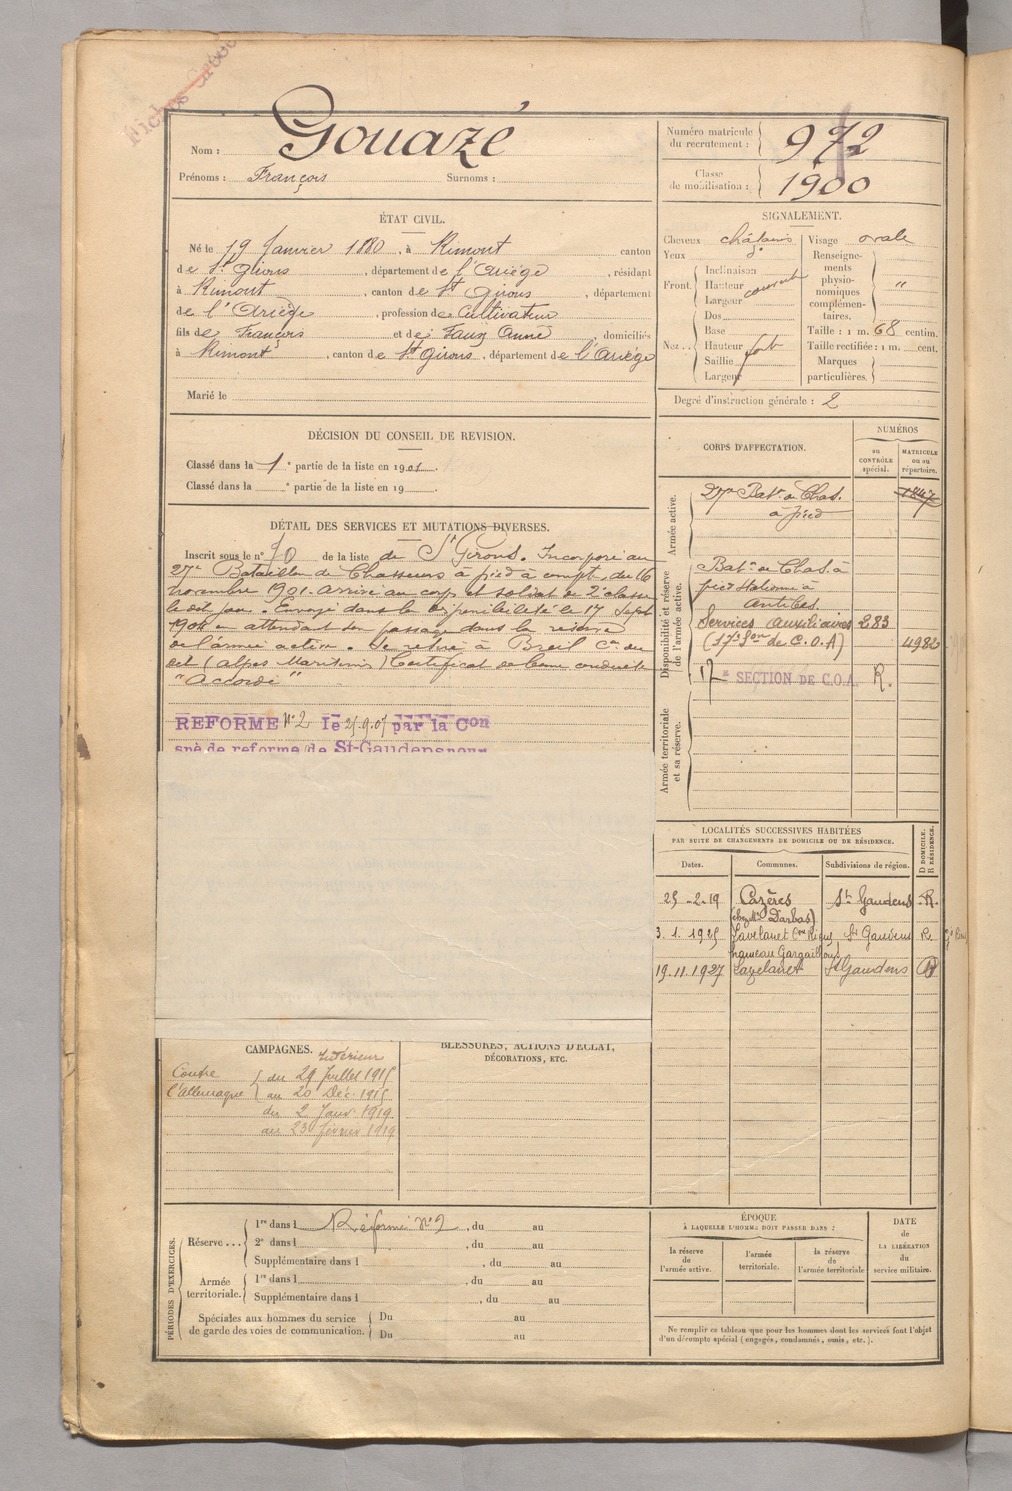 Fiches
Nom : Gouazé
Prénoms : François Surnoms :
Numéro matricule
du recrutement : 972
Classe
de mobilisation : 1900
ÉTAT CIVIL.
Né le 19 Janvier 1880, à Rimont canton
de St Girons, département de l'Ariège, résidant
à Rimont, canton de St Girons, département
de l'Ariège, profession de Cultivateur
fils de François et de Faux Anne, domiciliés
à Rimont, canton de St Girons, département de l'Ariège
Marié le
SIGNALEMENT.
Cheveux châtains
Yeux do
Front. Inclinaison
Hauteur couvert
Largeur
Dos
Base
Nez .. Hauteur fort
Saillie
Largeur
Visage ovale
Renseigne-
ments
physio-
nomiques
complémen-
taires. "
Taille : 1 m. 68 centim.
Taille rectifiée : 1 m. cent.
Marques
particulières.
Degré d'instruction générale : 2
DÉCISION DU CONSEIL DE REVISION.
Classé dans la 1e partie de la liste en 1901.
Classé dans la e partie de la liste en 19 .
DÉTAIL DES SERVICES ET MUTATIONS DIVERSES.
Inscrit sous le no 70 de la liste de St Girons. Incorporé au
27e Bataillon de Chasseurs à pied à compt. du 16
novembre 1901. Arrivé au corps et soldat de 2e classe
le dit jour. Envoyé dans la disponibilité le 17 Sept
1904 en attendant son passage dans la réserve
de l'armée active. Se retire à Breil Con du
dit (Alpes Maritimes) Certificat de bonne conduite
"Accordé"
REFORME No 2 le 25.9.07 par la Con
spé de reforme de St-Gaudens pour
CORPS D'AFFECTATION.
NUMÉROS
au
CONTRÔLE
spécial.
MATRICULE
ou au
répertoire.
Armée active.
27e Baton de Chas.
à pied 1847
Disponibilité et réserve
de l'armée active.
Baton de Chas. à
pied stationné à
Antibes.
Services Auxiliaires 283
(17e Son de C.O.A) 4982
17e SECTION DE C.O.A. R.
Armée territoriale
et sa réserve.
LOCALITÉS SUCCESSIVES HABITÉES
PAR SUITE DE CHANGEMENTS DE DOMICILE OU DE RÉSIDENCE.
Dates. Communes. Subdivisions de région. D DOMICILE. R RÉSIDENCE.
25-2-19 Cazères St Gaudens R.
(chez Mr Darbas)
3.1.1925 Lavelanet Con Rieux, St Gaudens R
hameau Gargaillous
19.11.1927 Lavelanet St Gaudens D
CAMPAGNES.
Intérieur
Contre
l'Allemagne
du 29 Juillet 1915
au 20 Déc. 1915
du 2 Janv 1919
au 23 février 1919
BLESSURES, ACTIONS D'ÉCLAT,
DÉCORATIONS, ETC.
PÉRIODES D'EXERCICES.
Réserve ... 1re dans l Réformé No 2, du au
2e dans l , du au
Supplémentaire dans l , du au
Armée
territoriale. 1re dans l , du au
Supplémentaire dans l , du au
Spéciales aux hommes du service
de garde des voies de communication. Du au
Du au
ÉPOQUE
À LAQUELLE L'HOMME DOIT PASSER DANS :
la réserve
de
l'armée active.
l'armée
territoriale.
la réserve
de
l'armée territoriale
DATE
de
LA LIBÉRATION
du
service militaire.
Ne remplir ce tableau que pour les hommes dont les services font l'objet
d'un décompte spécial (engagés, condamnés, omis, etc.).